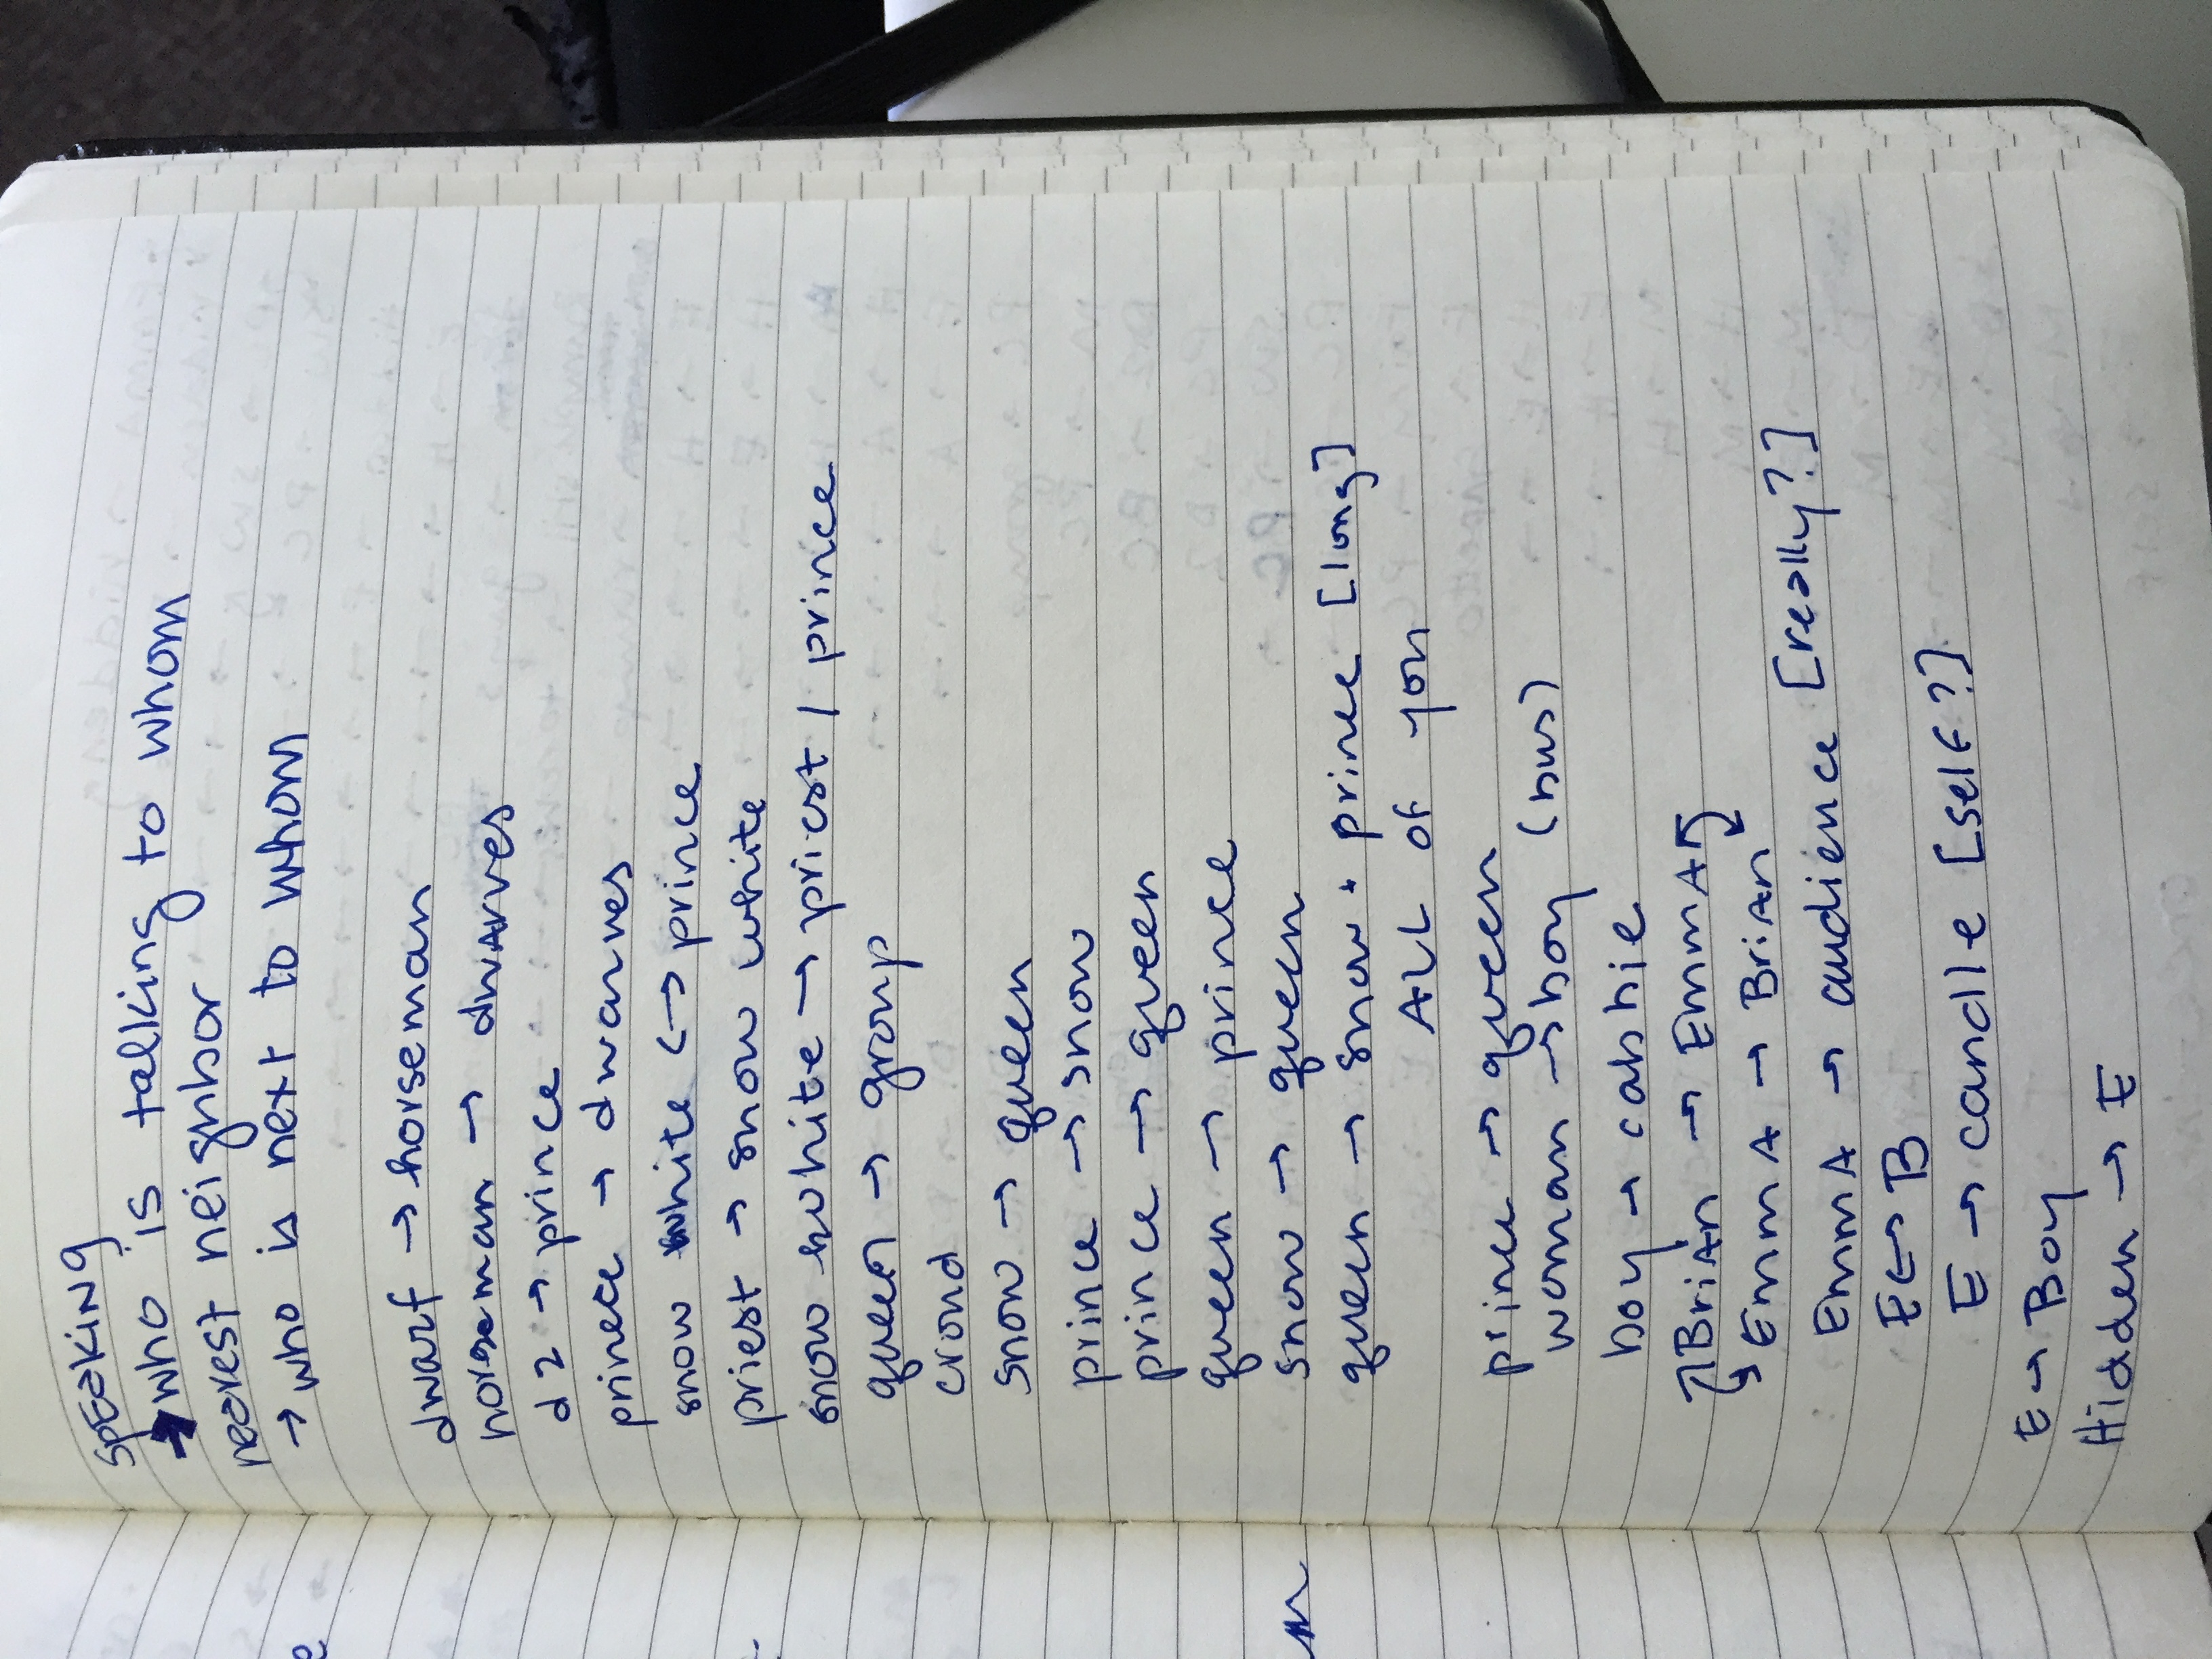 SPEAKING
→ who is talking to whom
nearest neighbor
→ who is next to whom
dwarf → horseman
horseman → dwarves
d2 → prince
prince → dwarves
snow white ↔ prince
priest → snow white
snow white → priest / prince
queen → group
crowd
snow → queen
prince → snow
prince → queen
queen → prince
snow → queen
queen → snow + prince [long]
ALL of you
prince → queen
woman → boy (bus)
boy → cabbie
BriAn → EmmA
EmmA → BriAn
EmmA → audience [really?]
E ↔ B
E → candle [self?]
E → Boy
Hidden → E